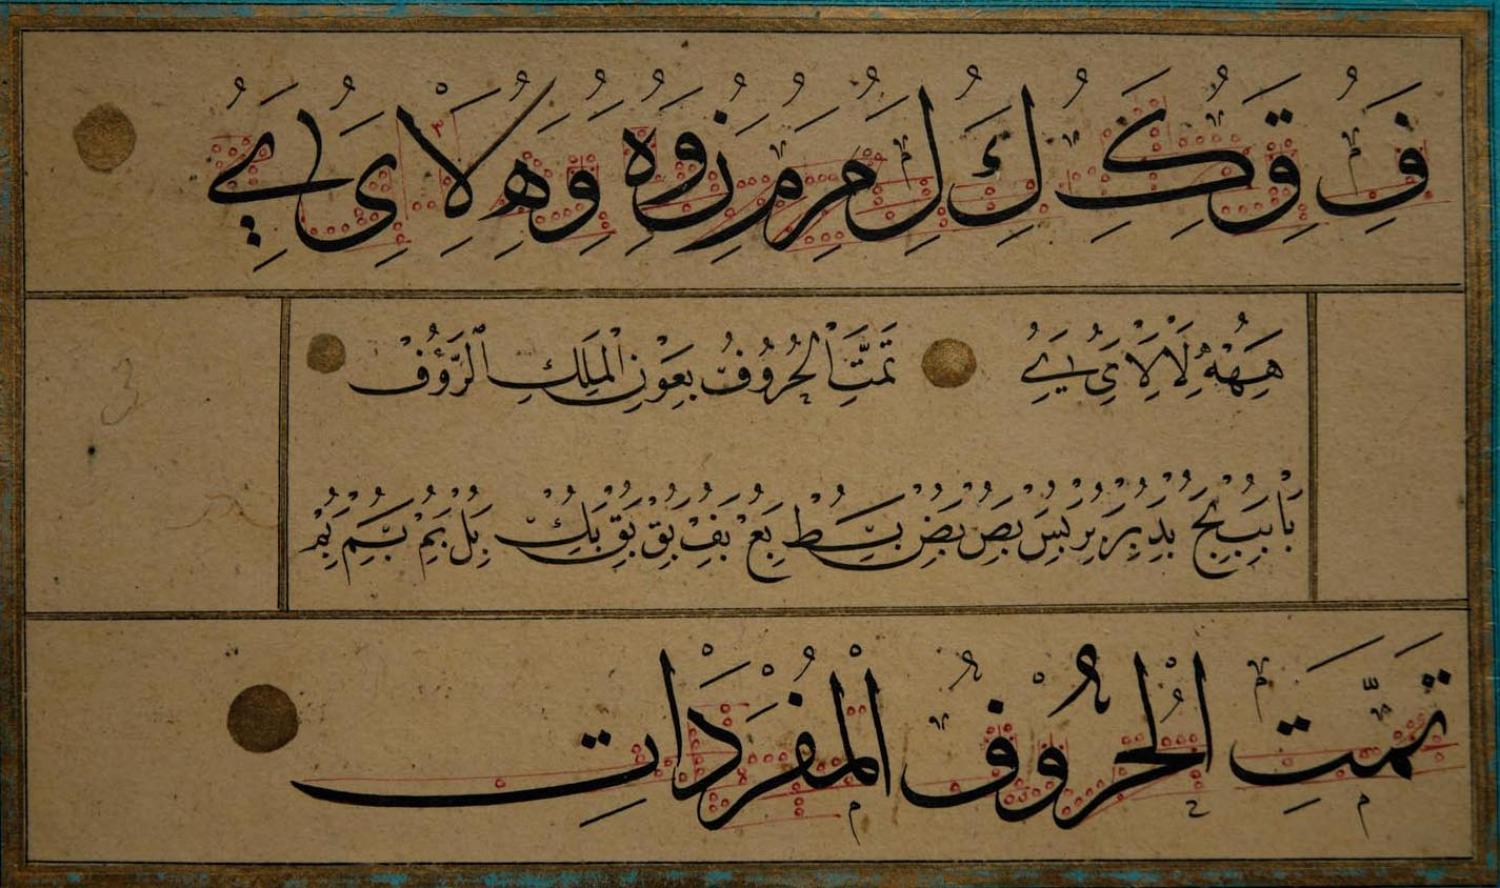 ف ق ك ك ل م م ز وه و ه لا ى ے
ههه لا لا ى ے تَمَّتَِ الحُرُوفُ بِعَوْنِ الْمَلِكِ الرَّؤُفْ
با بب بج بد بر بر بس بص بض بط بع بف بق بق بك بل بم بم بم
تَمَّتَِ الْحُرُوْفُ الْمُفْرَدَاتِ